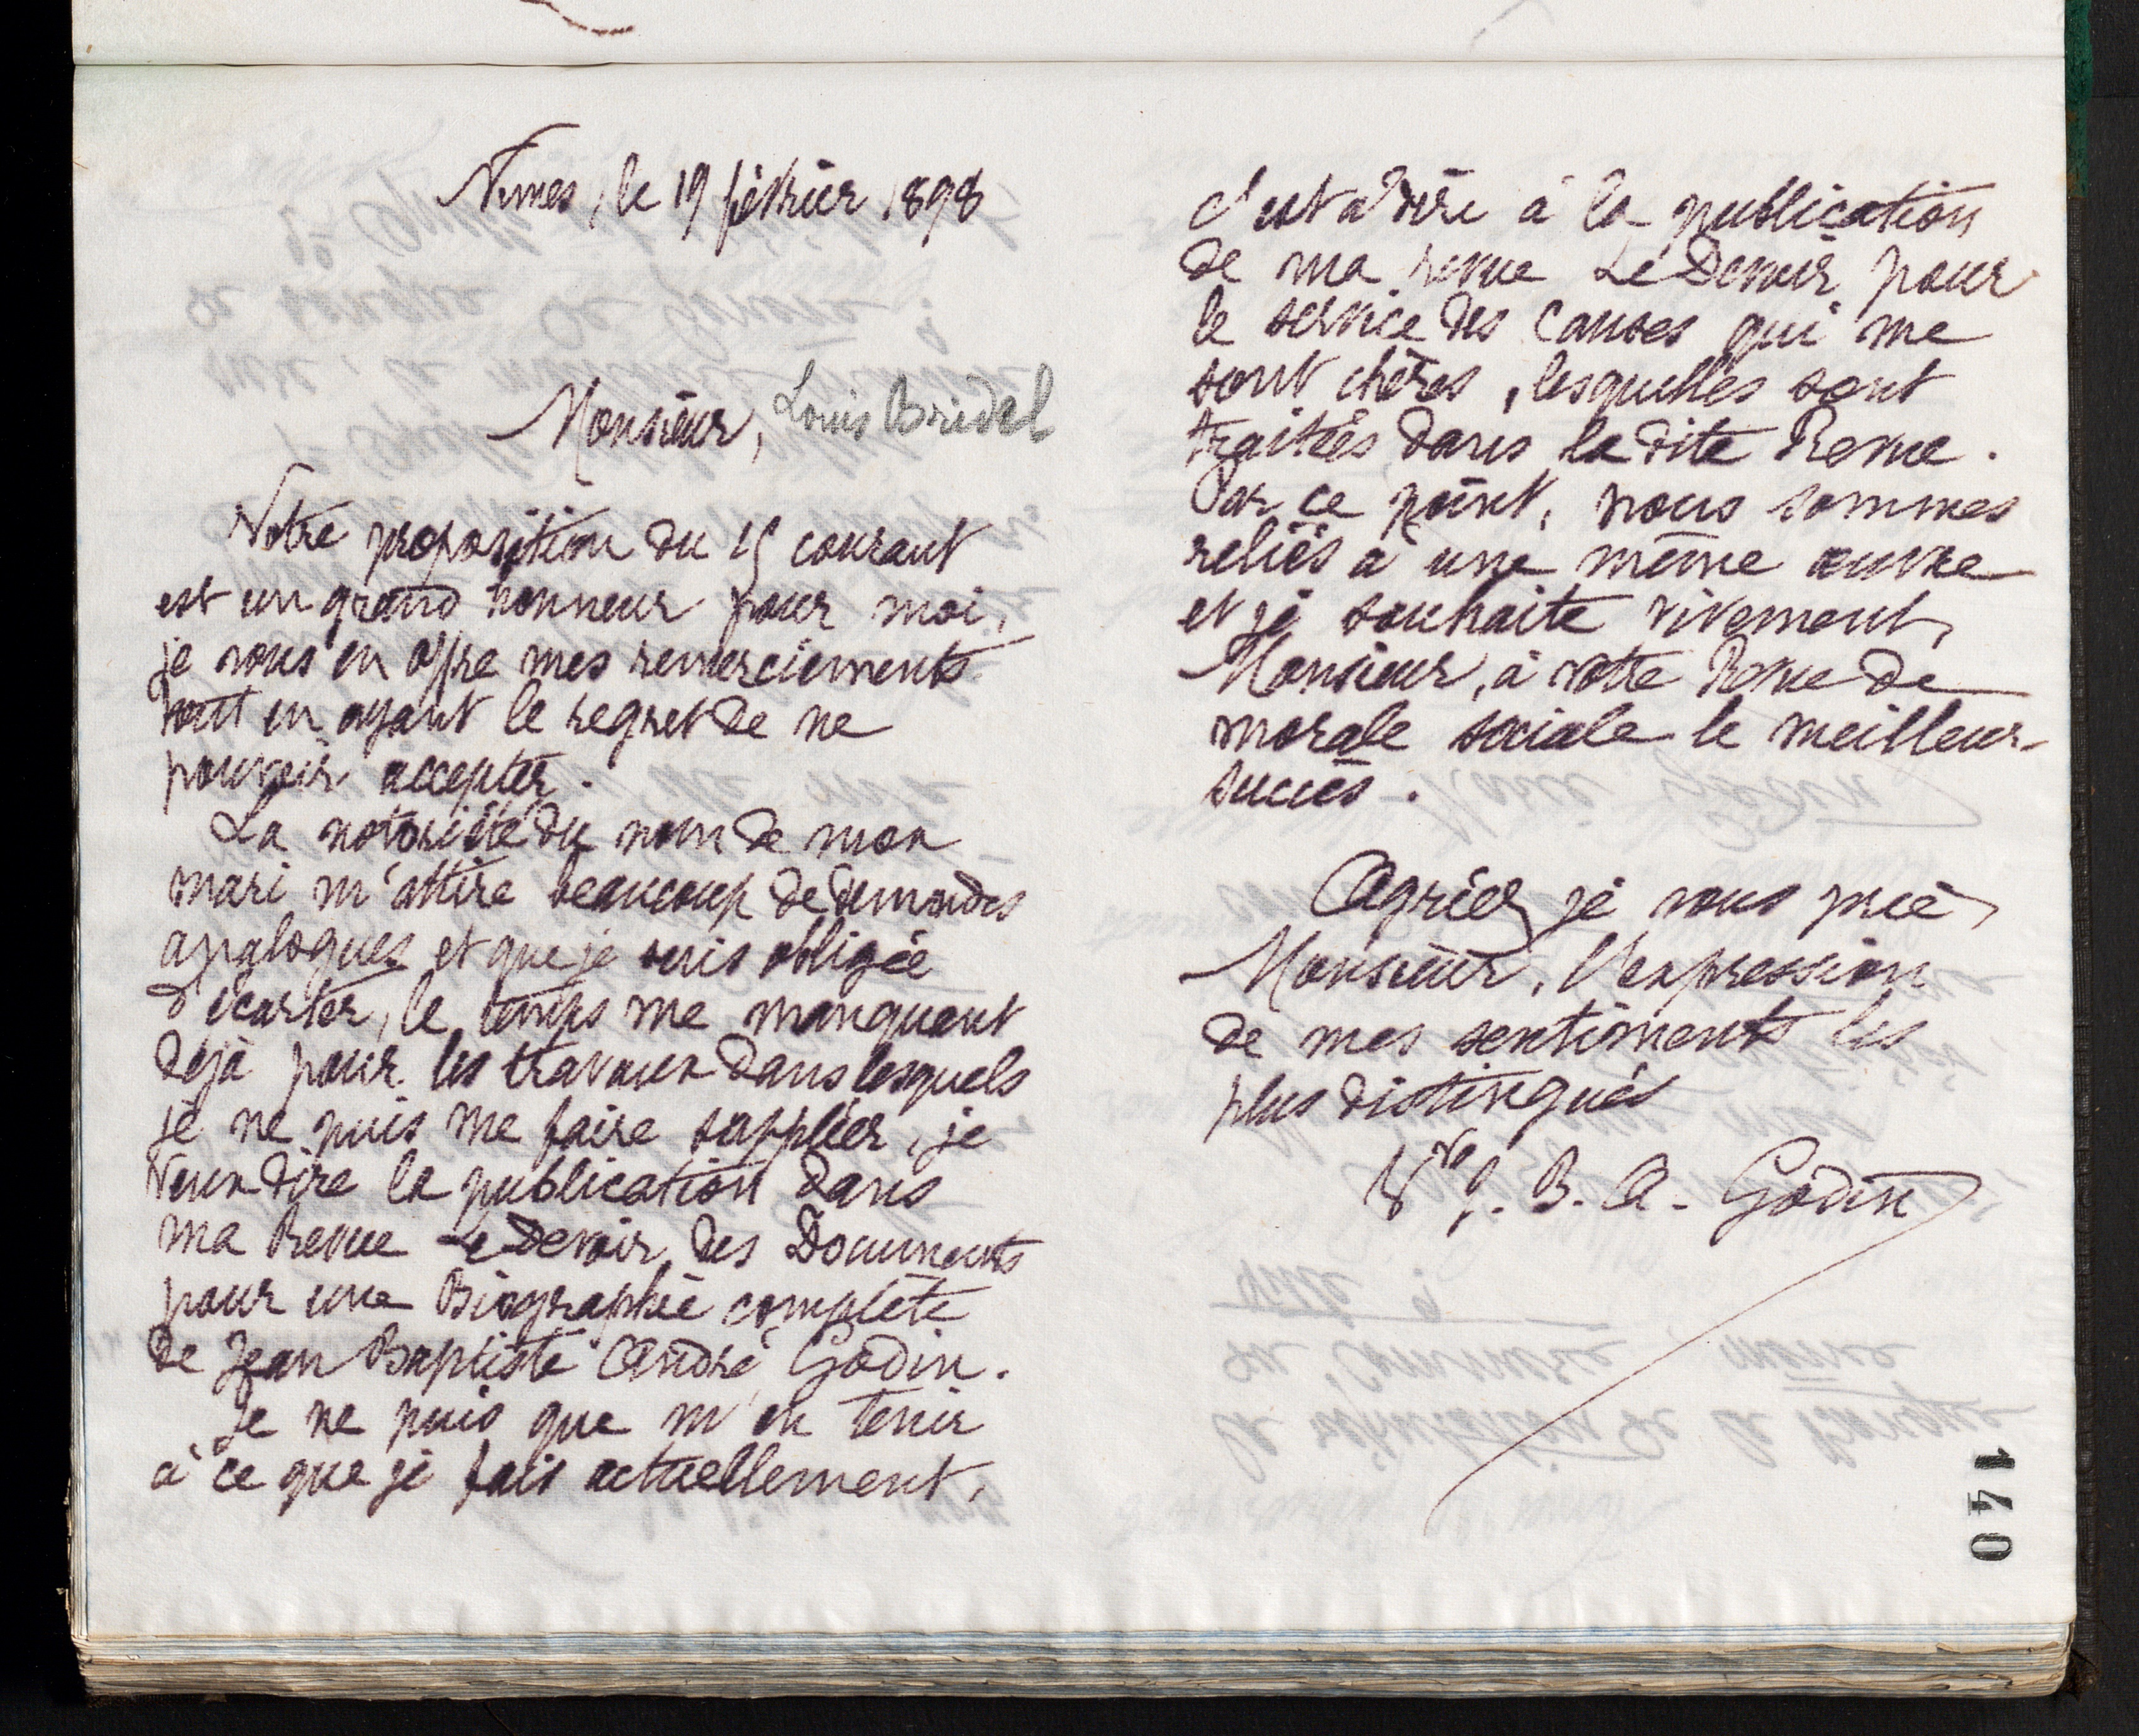 Nimes, le 19 février 1898
Monsieur, Louis Bridel
Votre proposition du 15 courant
est un grand honneur pour moi,
je vous en offre mes remerciements
tout en ayant le regret de ne
pouvoir accepter.
La notoriété du nom de mon
mari m'attire beaucoup de demandes
analogues et que je suis obligée
d'écarter, le temps me manquant
déjà pour les travaux dans lesquels
je ne puis me faire suppléer, je
veux dire la publication dans
ma Revue Le Devoir des Documents
pour une Biographie complète
de Jean Baptiste André Godin.
Je ne puis que m'en tenir
à ce que je fais actuellement,
c'est à dire à la publication
de ma revue Le Devoir pour
le service des Causes qui me
sont chères, lesquelles sont
traitées dans la dite Revue.
Par ce point, nous sommes
reliés à une même œuvre
et je souhaite vivement,
Monsieur, à votre Revue de
morale sociale le meilleur
succès.
Agréez je vous prie,
Monsieur, l'expression
de mes sentiments les
plus distingués
Vve J. B. A. Godin
140